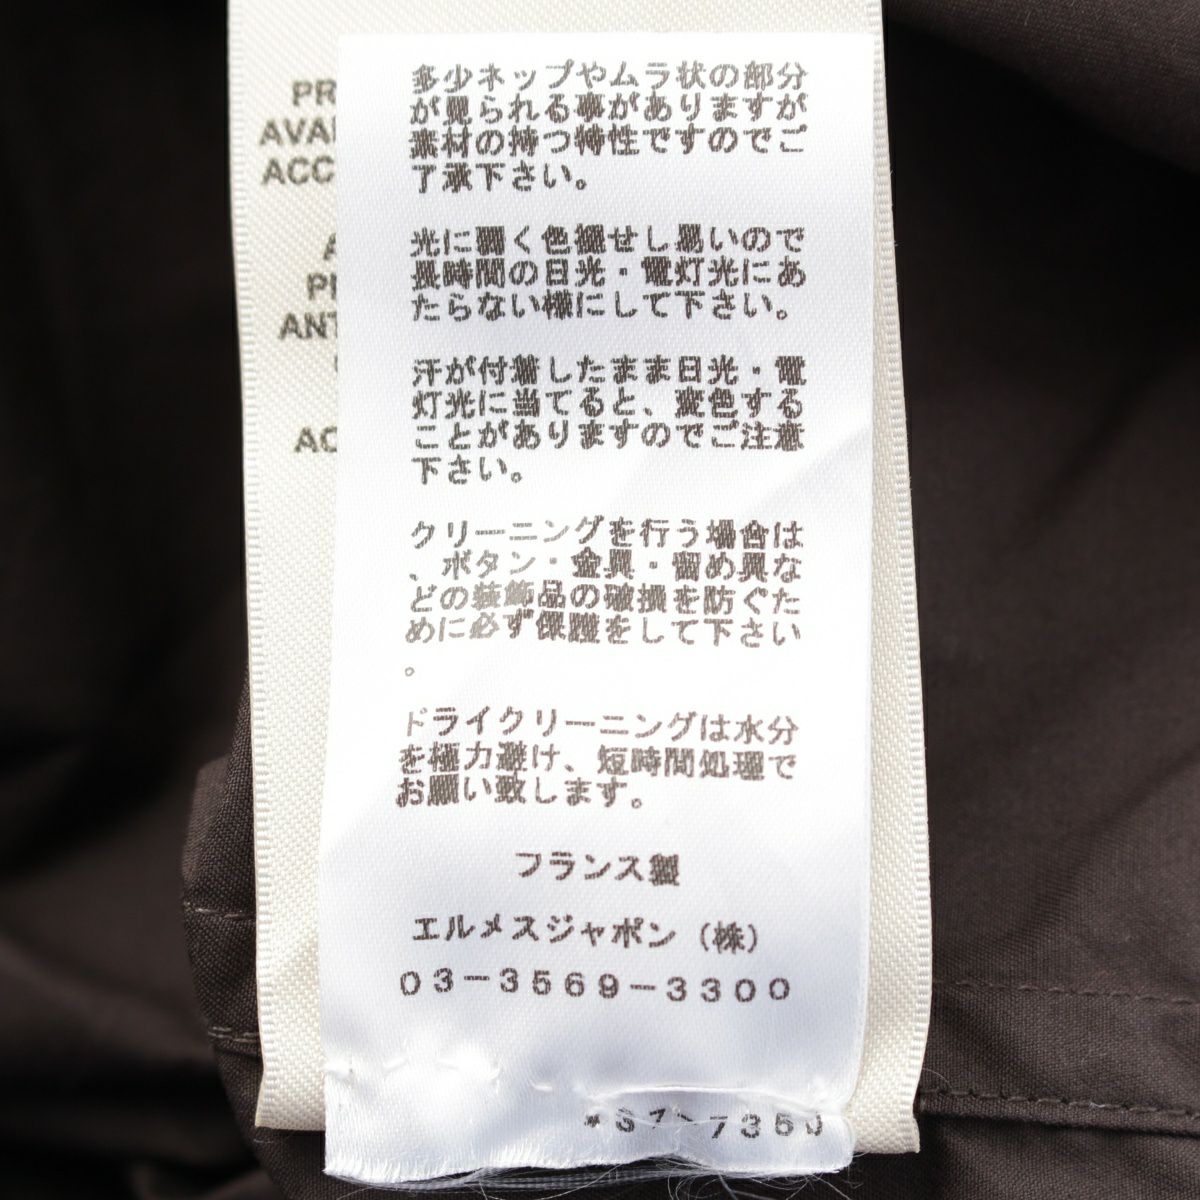 PR
AVA
ACC
A
PR
ANT
AC
多少ネップやムラ状の部分
が見られる事がありますが
素材の持つ特性ですのでご
了承下さい。
光に弱く色褪せし易いので
長時間の日光・電灯光にあ
たらない様にして下さい。
汗が付着したまま日光・電
灯光に当てると、変色する
ことがありますのでご注意
下さい。
クリーニングを行う場合は
、ボタン・金具・留め具な
どの装飾品の破損を防ぐた
めに必ず保護をして下さい
。
ドライクリーニングは水分
を極力避け、短時間処理で
お願い致します。
フランス製
エルメスジャポン（株）
03-3569-3300